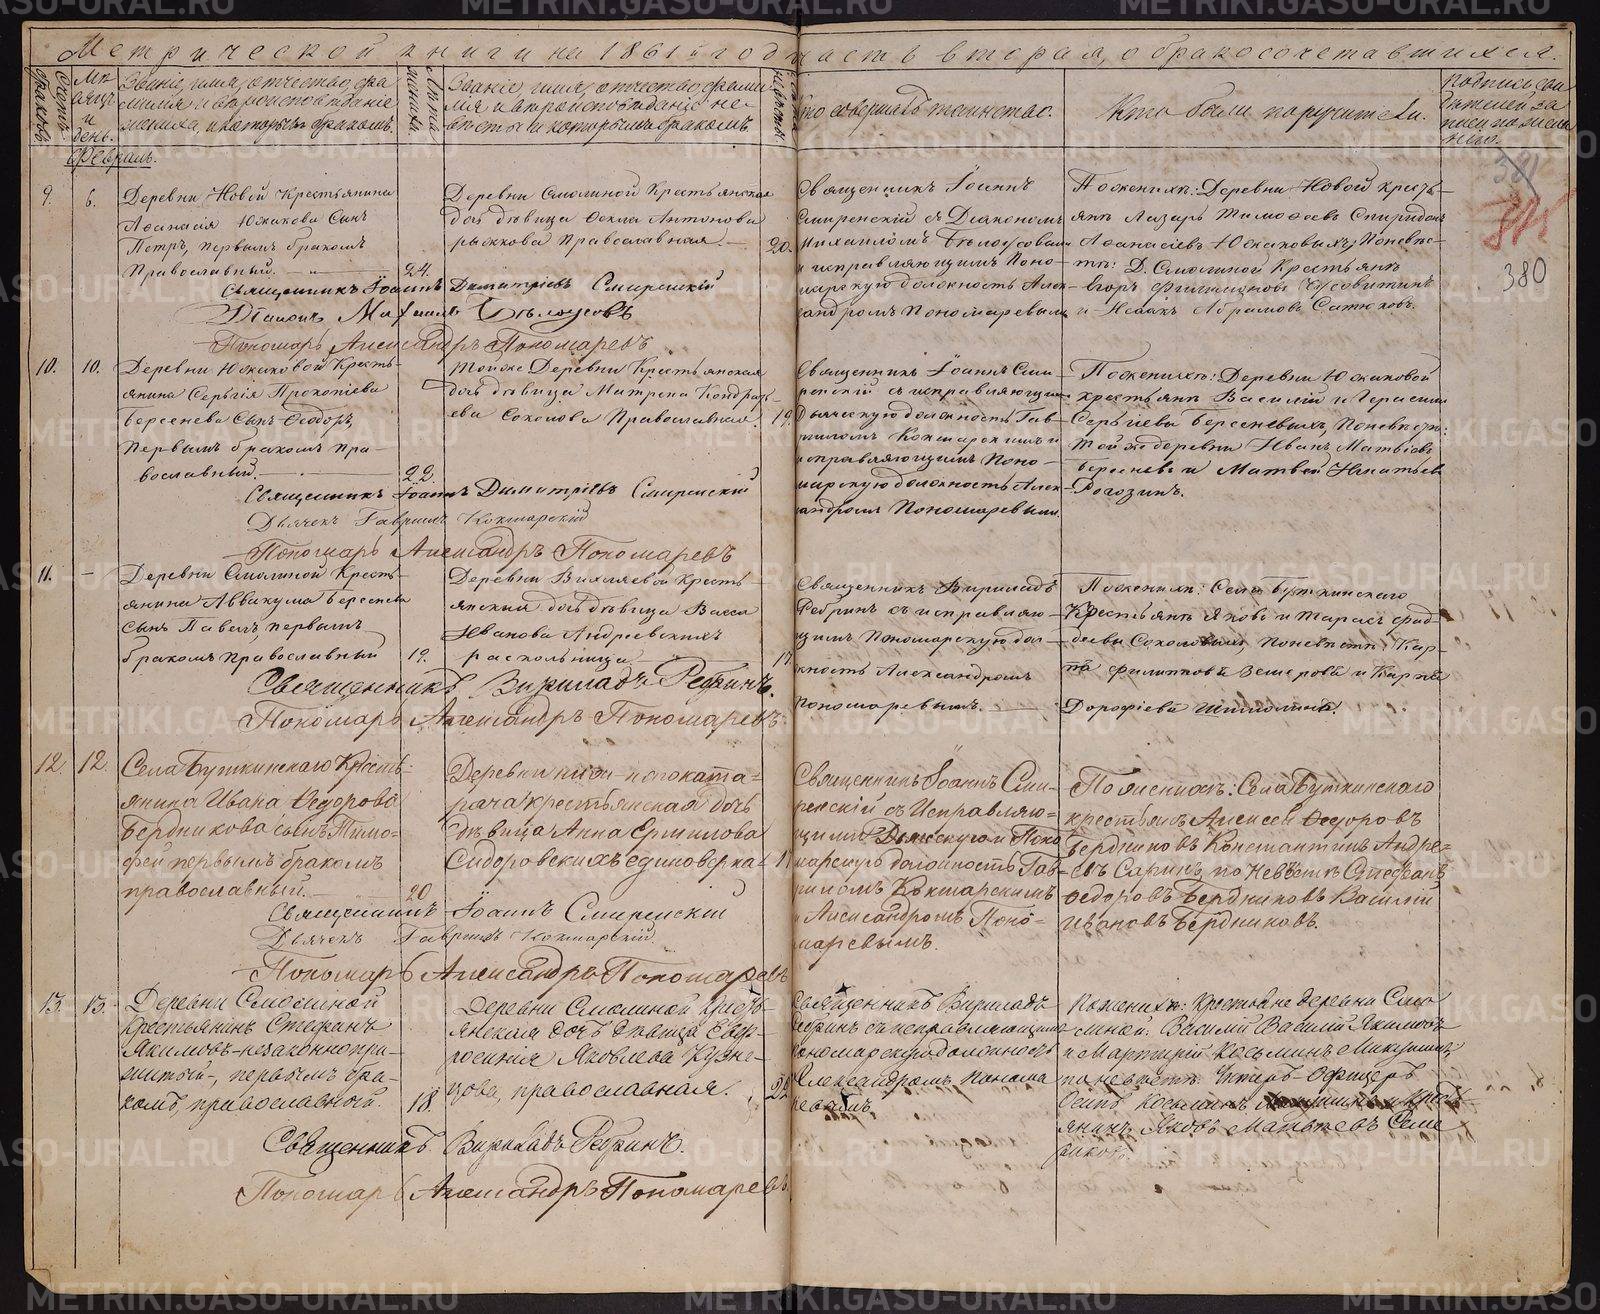 Метрической книги на 1861й годъ часть вторая, о бракосочетавшихся.
Счетъ браковъ.
Мѣсяцъ и день.
Званіе, имя, отчество, фамилія и вѣроисповѣданіе жениха, и которымъ бракомъ.
Лѣта жениха.
Званіе, имя, отчество, фамилія и вѣроисповѣданіе невѣсты и которымъ бракомъ.
Лѣта невѣсты.
Кто совершалъ таинство.
Кто были поручители.
Подпись свидѣтелей записи по желанію.
Февраль.
381
380
9.
6.
Деревни Новой Крестьянина
Аѳанасія Южакова Сынъ
Петръ, первымъ бракомъ
Православный.
24.
Деревни Смолиной Крестьянская
дочь дѣвица Ѳекла Антонова
Православная.
20.
Священникъ Іоаннъ
Смиренскій съ Діакономъ
Михаиломъ Бѣлоусовымъ
и исправляющимъ Поно-
марскую должность Алек-
сандромъ Пономаревымъ
По женихѣ: Деревни Новой кресть-
яне Лазарь Тимоѳеевъ Спиридонъ
Аѳанасіевъ Южаковыхъ, По невѣс-
тѣ: Д. Смолиной Крестьяне
Егоръ Филимоновъ
и Исаакъ Абрамовъ
Священникъ Іоаннъ Димитріевъ Смиренскій
Діаконъ Михаилъ Бѣлоусовъ
Пономарь Александръ Пономаревъ
10.
10.
Деревни Южаковой Кресть-
янина Сергія Прокопіева
Берсенева Сынъ Ѳеодоръ,
Первымъ бракомъ Пра-
вославный.
22.
Той же Деревни Крестьянская
дочь дѣвица Матрена Кондрать-
ева Соколова Православная.
19.
Священникъ Іоаннъ Сми-
ренскій съ исправляющимъ
Дьяческую должность Гав-
риломъ Кокшарскимъ и
исправляющимъ Поно-
марскую должность Алек-
сандромъ Пономаревымъ.
По женихѣ: Деревни Южаковой
крестьяне Василій и Герасимъ
Сергіевы Берсеневыхъ, По невѣстѣ:
Той же деревни Иванъ Матвѣевъ
Берсеневъ и Матвей Игнатьевъ
Рогозинъ.
Священникъ Іоаннъ Димитріевъ Смиренскій
Дьячекъ Гавріилъ Кокшарскій
Пономарь Александръ Пономаревъ
11.
—
Деревни Смолиной Кресть-
янина Аввакума Берсенева
Сынъ Павелъ, первымъ
бракомъ Православный
19.
Деревни Вихляевой Кресть-
янская дочь дѣвица Васса
Иванова Андреевскихъ
раскольница
17
Священникъ Вириладъ
Ребринъ съ исправляю-
щимъ Пономарскую дол-
жность Александромъ
Пономаревымъ.
По женихѣ: Села Буткинскаго
Крестьяне Яковъ и Тарасъ Фад-
деевы Соколовыхъ, По невѣстѣ: Кар-
пъ Филиповъ и Карпъ
Дороѳіевъ
Священникъ Вириладъ Ребринъ.
Пономарь Александръ Пономаревъ
12.
12.
Села Буткинскаго Кресть-
янина Ивана Ѳедорова
Бердникова сынъ Тимо-
фей первымъ бракомъ
православный.
20
крестьянская дочь
дѣвица Анна Ермилова
Сидоровскихъ единоверка
Священникъ Іоаннъ Сми-
ренскій съ Исправляю-
щими Дьяческую и Поно-
марскую должность Гав-
риломъ Кокшарскимъ
и Александромъ Поно-
маревымъ.
По женихѣ: Села Буткинскаго
крестьяне Алексей Ѳедоровъ
Бердниковъ Константинъ Андре-
евъ Саринъ, по Невѣстѣ Стефанъ
Ѳедоровъ Бердниковъ Василій
Ивановъ Бердниковъ.
Священникъ Іоаннъ Смиренскій
Дьячекъ Гавріилъ Кокшарскій.
Пономарь Александръ Пономаревъ
13.
13.
Деревни Смолиной
Крестьянинъ Стефанъ
Якимовъ незаконнопри-
житый, первымъ бра-
комъ, православный.
18.
Деревни Смолиной Кресть-
янская дочь дѣвица Евф-
росинія Яковлева Кузне-
цова, православная.
22
Священникъ Вириладъ
Ребринъ съ исправляющимъ
пономарскую должность
Александромъ Понома-
ревымъ
По женихѣ: Крестьяне деревни Смо-
линой: Василій Василій Якимовъ
и Мартирій Косьминъ Микушинъ,
по невѣстѣ: Унтеръ-Офицеръ
Осипъ Косьминъ и Крест-
янинъ Яковъ Матвѣевъ
Священникъ Вириладъ Ребринъ.
Пономарь Александръ Пономаревъ
METRIKI.GASO-URAL.RU